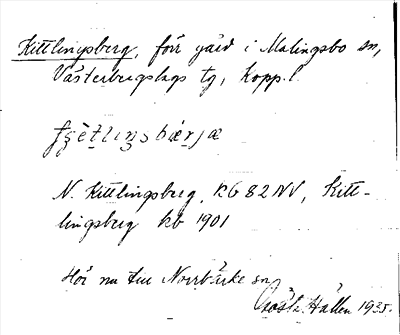 Kittlingsberg, förr gård i Malingsbo sn,
Västerbergslags tg, Kopp. l.
N. Kittlingsberg, kb 82 NV, Kitt-
lingsberg kb 1901
Hör nu till Norrbärke sn,
Gösta Hallen 1935.